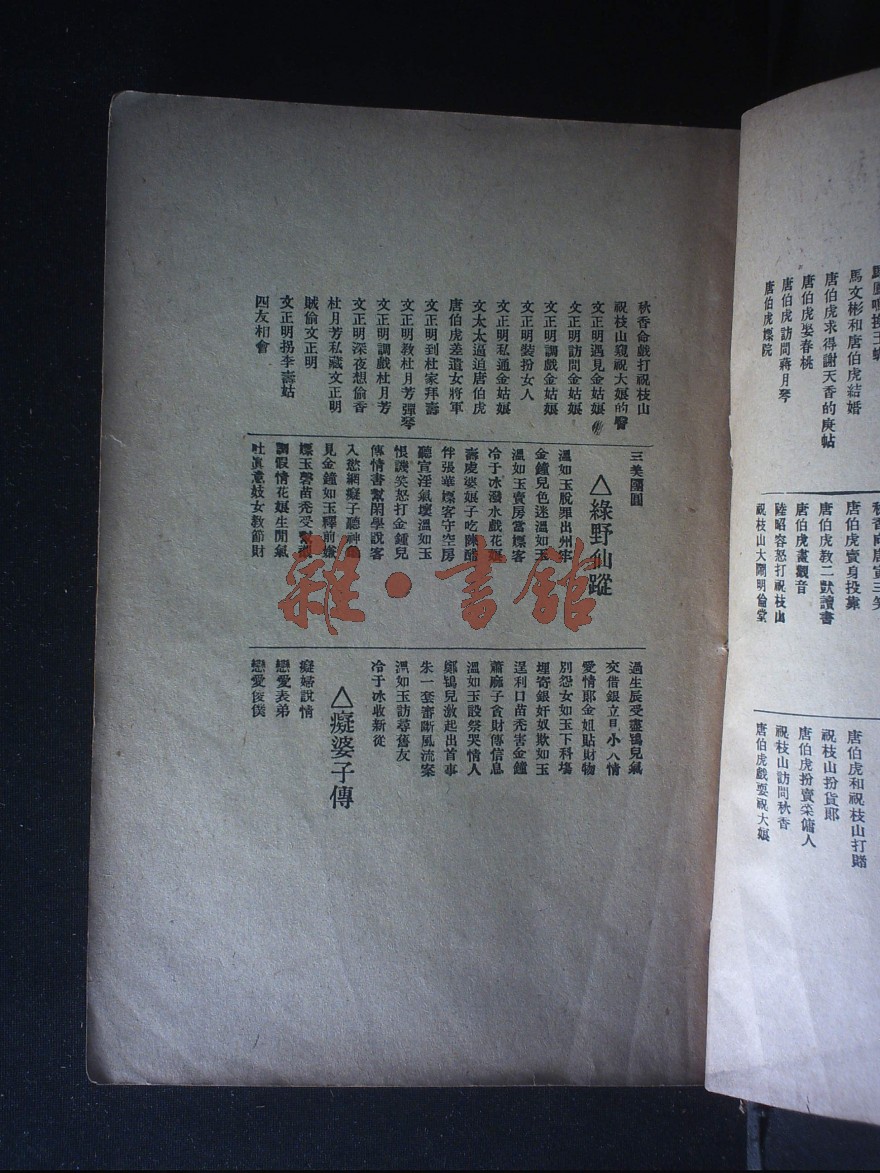 馬文彬和唐伯虎結婚
唐伯虎求得謝天香的庚帖
唐伯虎娶春桃
唐伯虎訪問蔣月琴
唐伯虎嫖院
秋香向唐寅三笑
唐伯虎賣身投靠
唐伯虎教二獃讀書
唐伯虎畫觀音
陸昭容怒打祝枝山
祝枝山大鬧明倫堂
唐伯虎和祝枝山打賭
祝枝山扮貨郎
唐伯虎扮賣柴傭人
祝枝山訪問秋香
唐伯虎戲耍祝大娘
秋香命戲打祝枝山
祝枝山窺視大娘的臀
文正明遇見金姑娘
文正明訪問金姑娘
文正明調戲金姑娘
文正明裝扮女人
文正明私通金姑娘
文太太逼迫唐伯虎
唐伯虎差遣女將軍
文正明到杜家拜壽
文正明教杜月芳彈琴
文正明調戲杜月芳
文正明深夜想偷香
杜月芳私藏文正明
賊偷文正明
文正明拐李壽姑
四友相會
三美團圓
△綠野仙蹤
溫如玉脫罪出州牢
金鐘兒色迷溫如玉
溫如玉賣房當嫖客
冷于冰潑水戲花娘
壽虔婆娘子吃陳醋
伴張華嫖客守空房
聽宣淫氣壞溫如玉
恨譏笑怒打金鐘兒
傳情書幫閑學說客
入慾網癡子聽神
見金鐘如玉釋前嫌
嫖玉磬苗禿受幫
調假情花娘生閒氣
吐眞意妓女教節財
過生辰受盡鴇兒氣
交借銀立見小人情
愛情郎金姐貼財物
別怨女如玉下科場
埋寄銀奸奴欺如玉
逞利口苗禿害金鐘
蕭麻子貪財傳信息
溫如玉設祭哭情人
鄭鴇兒激起出首事
朱一套審斷風流案
溫如玉訪尋舊友
冷于冰收新從
△癡婆子傳
癡婦說情
戀愛表弟
戀愛俊僕
雜·書館